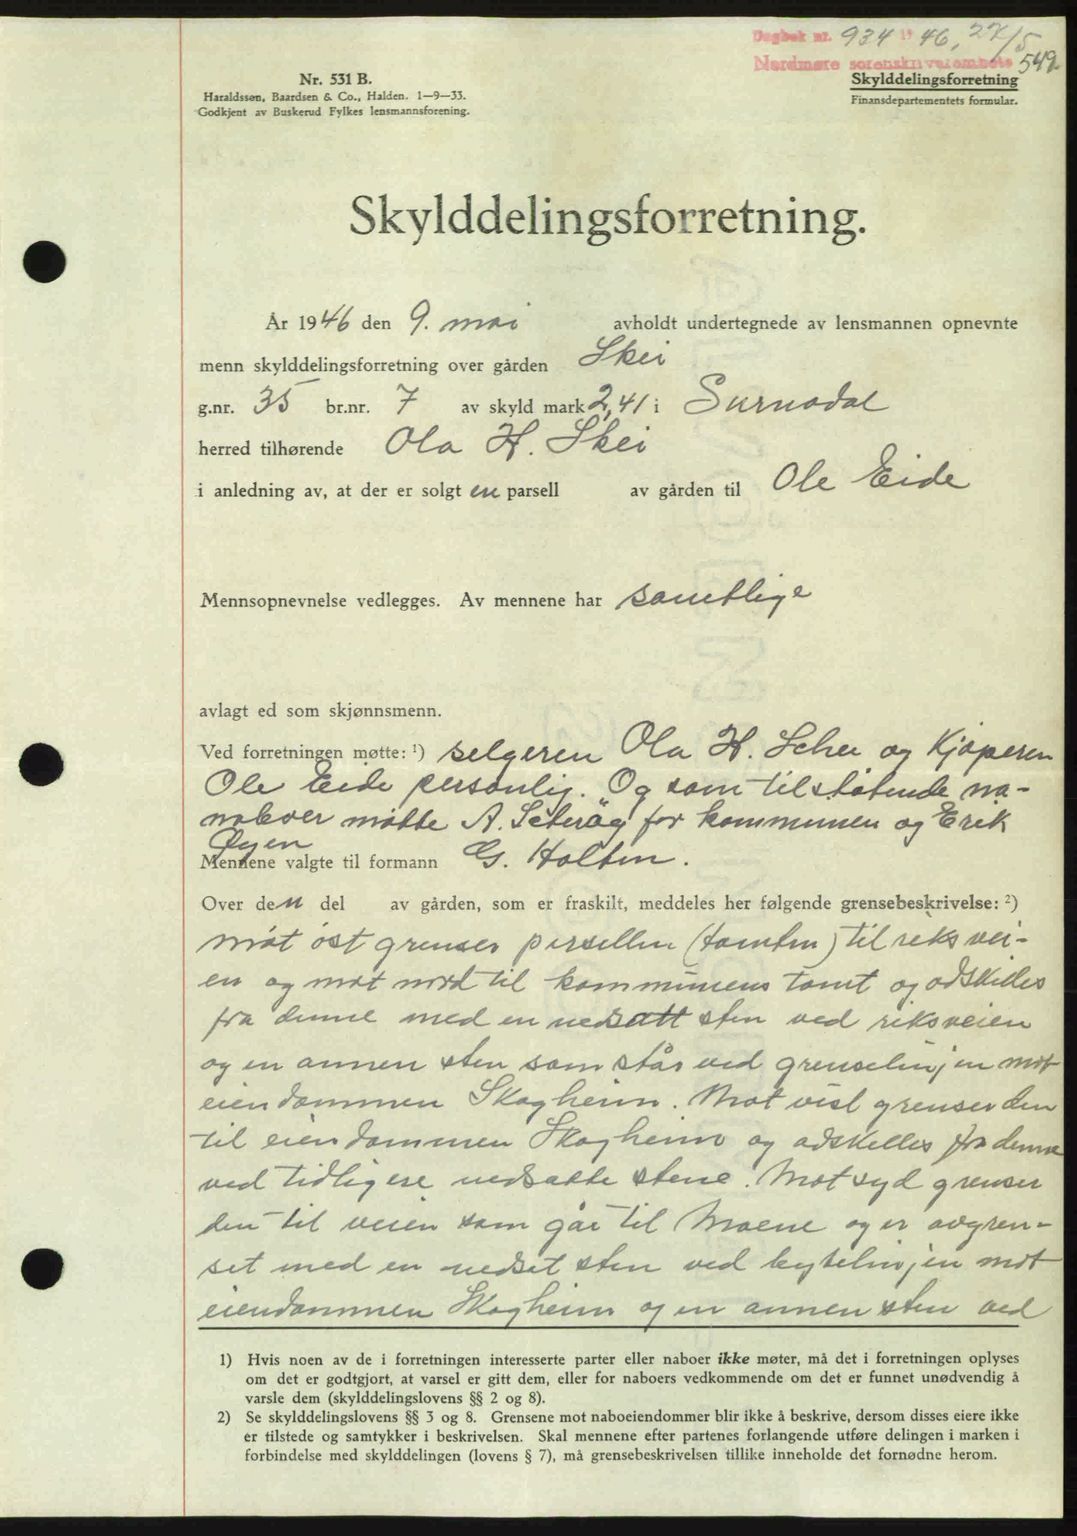 Dagbok nr. 934 1946, 27/5
Nordmøre sorenskriverembete 549
Nr. 531 B.
Haraldssen, Baardsen & Co., Halden. 1—9—33.
Godkjent av Buskerud Fylkes lensmannsforening.
Skylddelingsforretning
Finansdepartementets formular.
Skylddelingsforretning.
År 1946 den 9. mai avholdt undertegnede av lensmannen opnevnte
menn skylddelingsforretning over gården Skei
g.nr. 35 br.nr. 7 av skyld mark 2,41 i Surnadal
herred tilhørende Ola H. Skei
i anledning av, at der er solgt en parsell av gården til Ole Eide
Mennsopnevnelse vedlegges. Av mennene har samtlige
avlagt ed som skjønnsmenn.
Ved forretningen møtte: 1) selgeren Ola H. Schei og Kjøperen
Ole Eide personlig. Og som tilstøtende na-
naboer møtte A. Sæterøy for kommunen og Erik
Øyen
Mennene valgte til formann G. Holten.
Over den del av gården, som er fraskilt, meddeles her følgende grensebeskrivelse: 2)
mot øst grenser persellen (tomten) til riksvei-
en og mot nord til kommunens tomt og adskilles
fra denne med en nedsatt sten ved riksveien
og en annen sten som står ved grenselinjen mot
eiendommen Skogheim. Mot vest grenser den
til eiendommen Skogheim og adskilles fra denne
ved tidligere nedsatte stene. Mot syd grenser
den til veien som går til Moene og er avgren-
set med en nedset sten ved bytelinjen mot
eiendommen Skogheim og en annen sten ved
1) Hvis noen av de i forretningen interesserte parter eller naboer ikke møter, må det i forretningen oplyses
om det er godtgjort, at varsel er gitt dem, eller for naboers vedkommende om det er funnet unødvendig å
varsle dem (skylddelingslovens §§ 2 og 8).
2) Se skylddelingslovens §§ 3 og 8. Grensene mot naboeiendommer blir ikke å beskrive, dersom disses eiere ikke
er tilstede og samtykker i beskrivelsen. Skal mennene efter partenes forlangende utføre delingen i marken i
forbindelse med skylddelingen (lovens § 7), må grensebeskrivelsen tillike inneholde det fornødne herom.